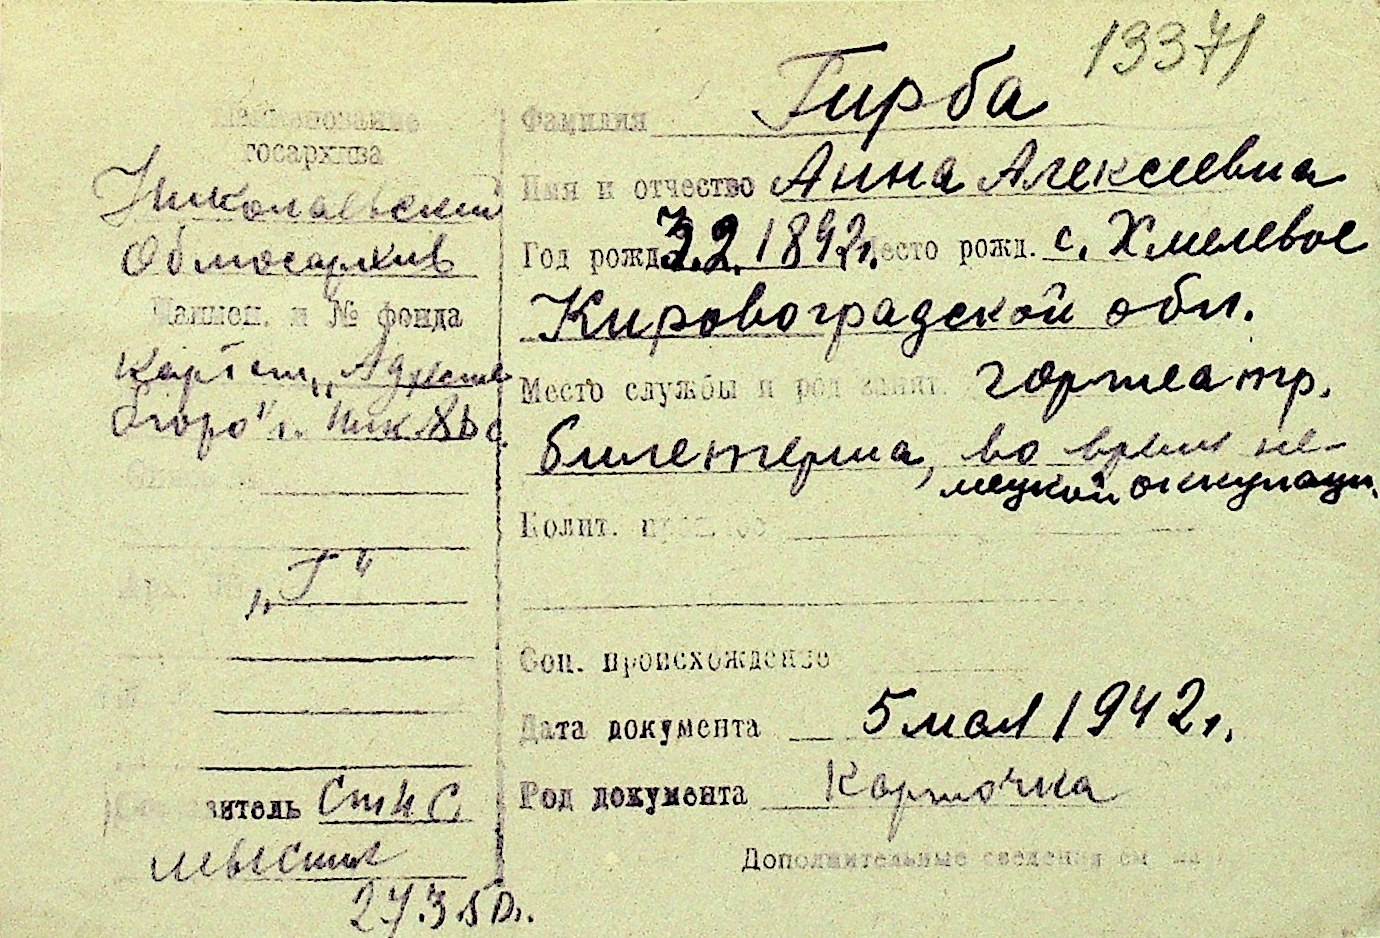 13371
Наименование
госархива
Николаевский
Облгосархив
Наимен. и № фонда
Картот. „Адресное
бюро" г. Ник
„Г"
Составитель Ст н с
27.3.50г.
Фамилия Гирба
Имя и отчество Анна Алексеевна
Год рожд. 2. 1892г. Место рожд. с. Хмелевое
Кировоградской обл.
Место службы и род занят. гортеатр.
билетерша, во время не-
мецкой оккупаци.
Полит. прошлое
Соц. происхождение
Дата документа 5 мая 1942г.
Род документа Карточка
Дополнительные сведения см